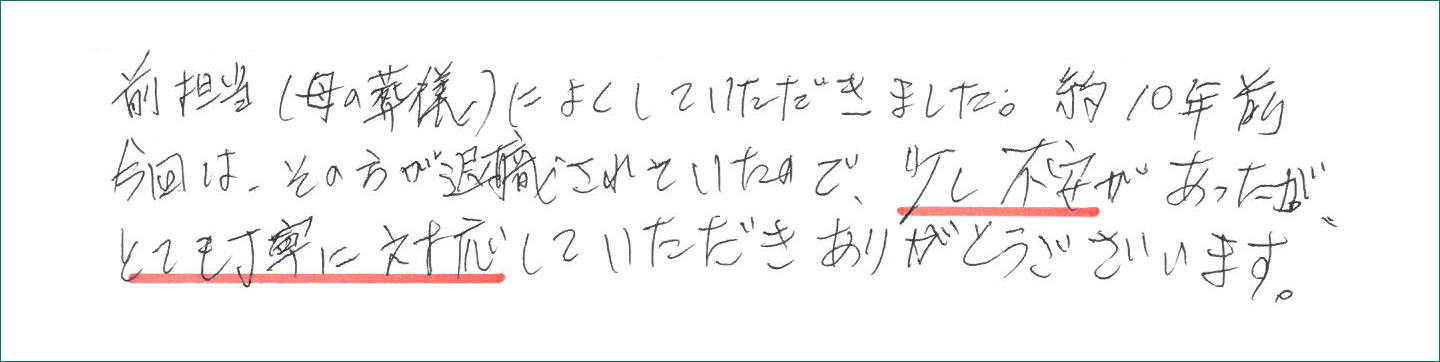 前担当(母の葬様)によくしていただきました。約10年前
今回は、その方が退職されていたので、少し不安があったが
とても丁寧に対応していただきありがとうございます。